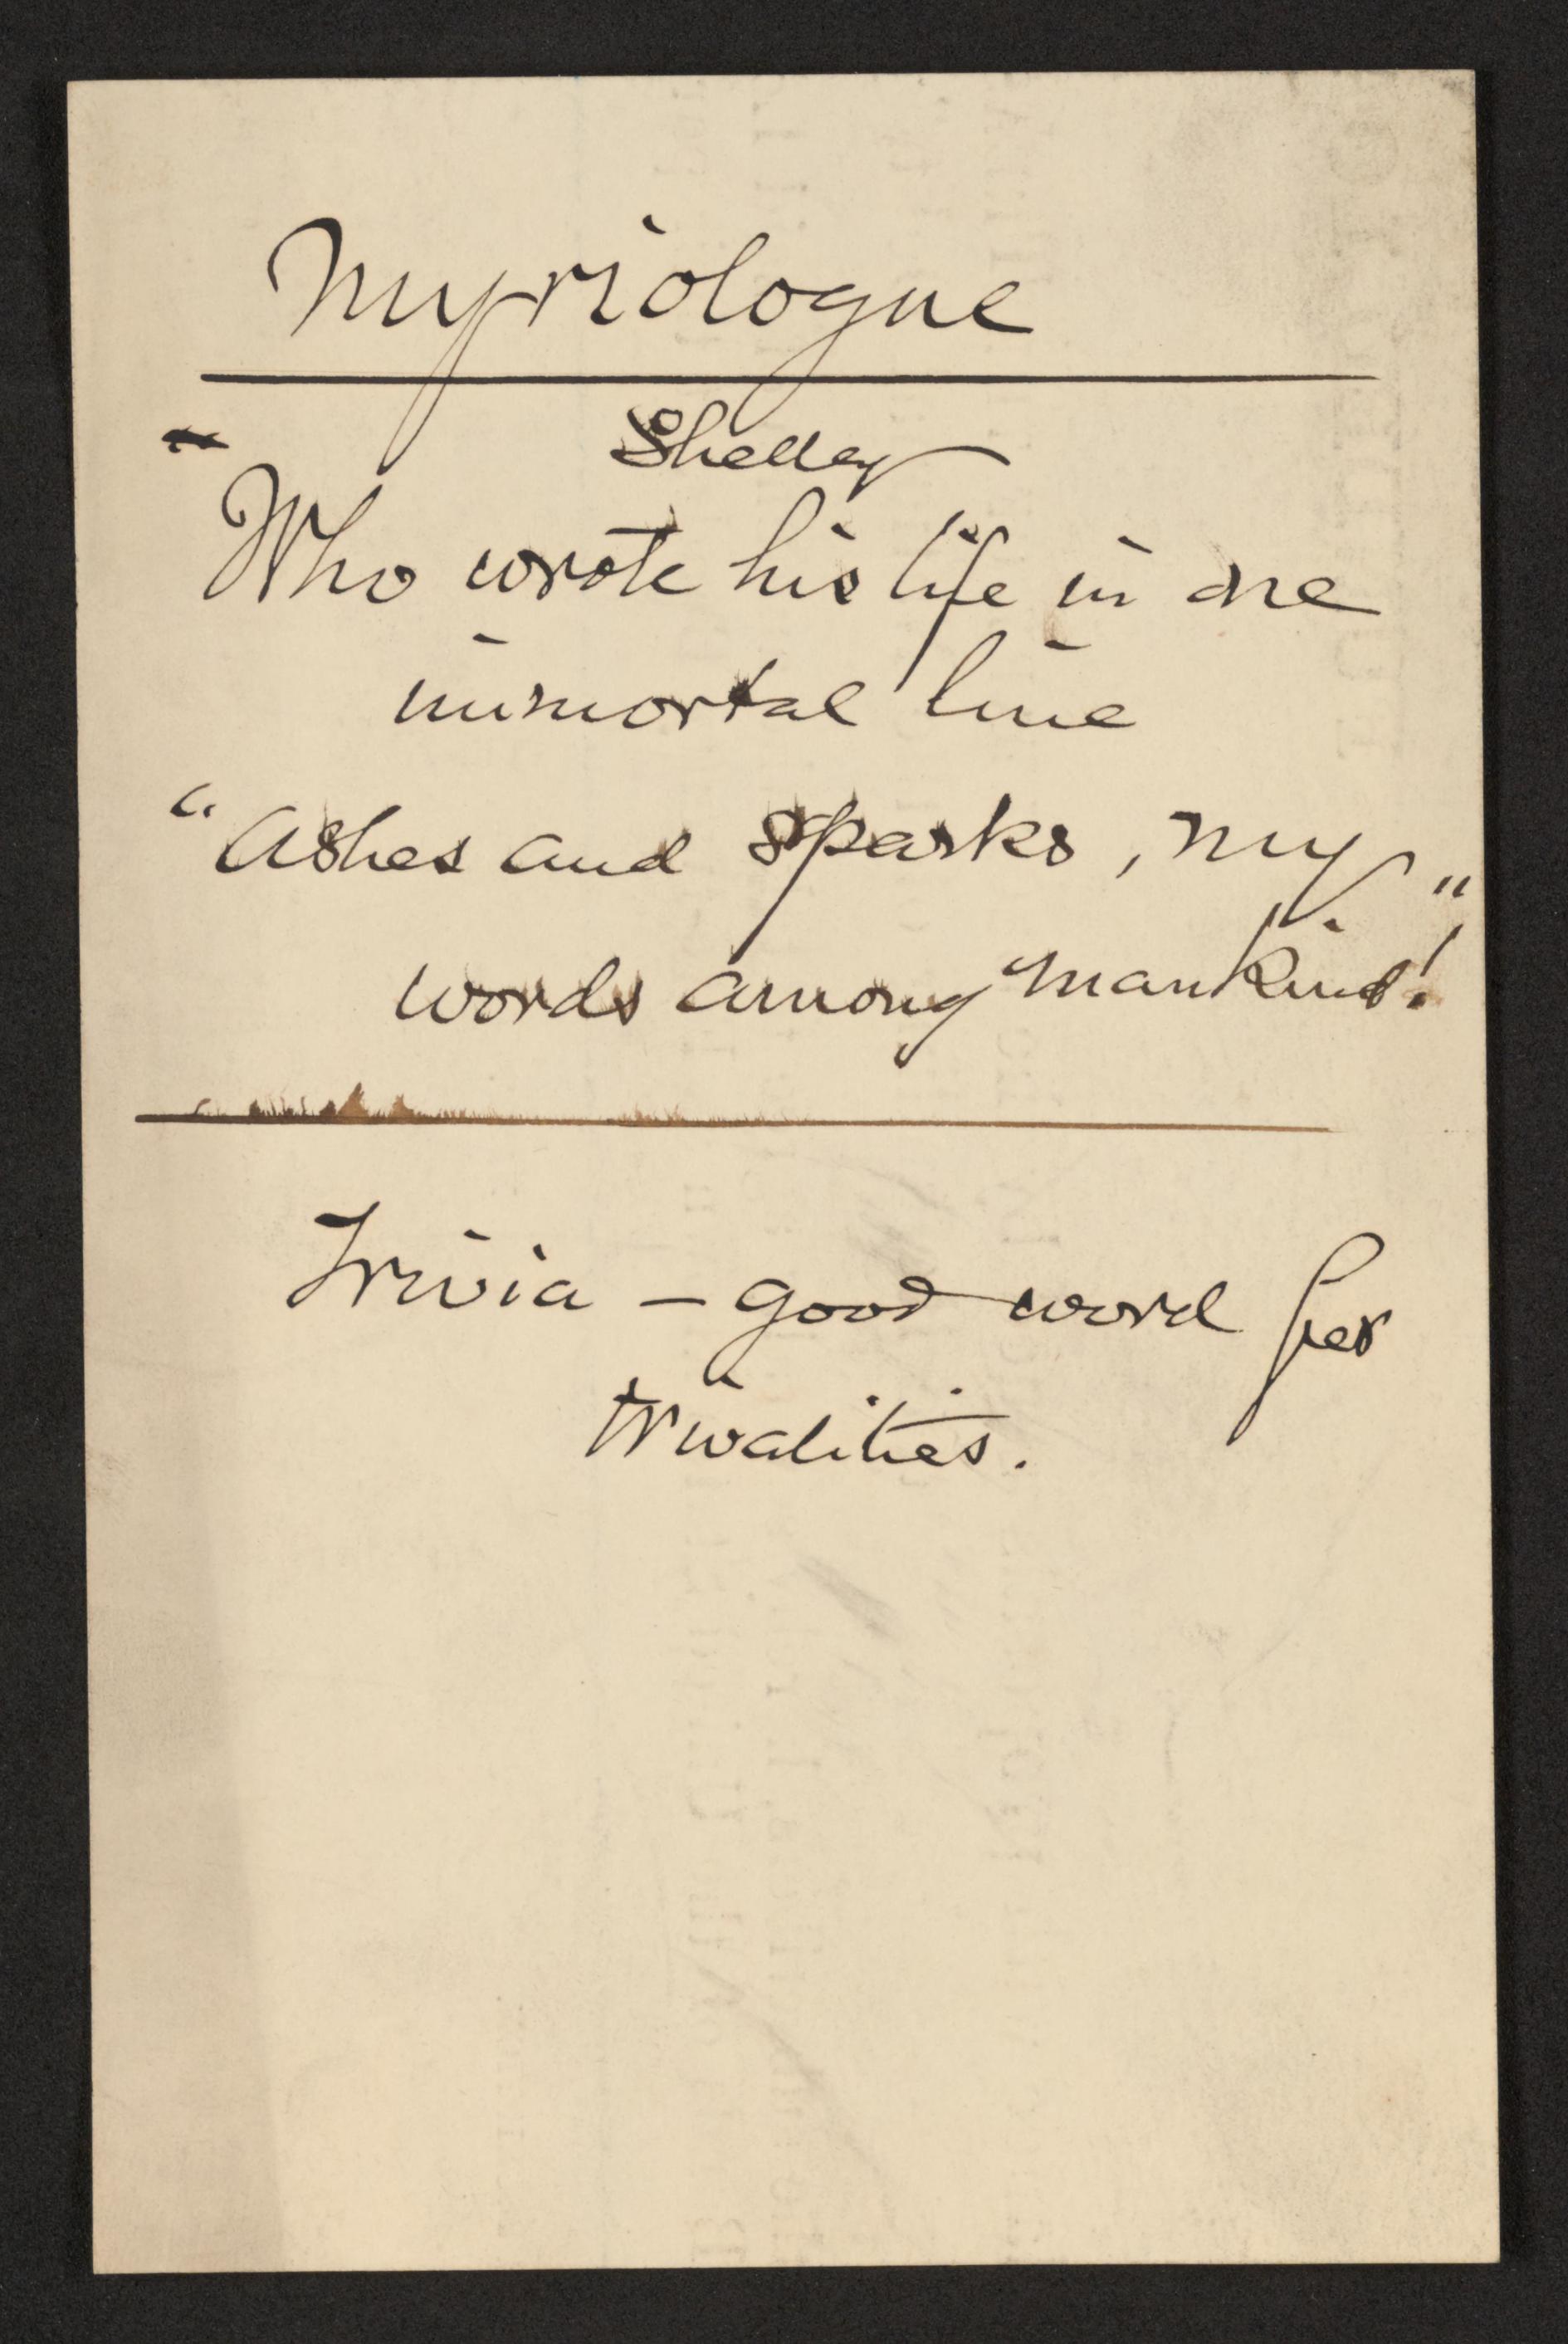 Myriologue
Shelley
Who wrote his life in one
immortal line
"Ashes and sparks, my
words among mankind!"
Trivia - good word for
trivialities.